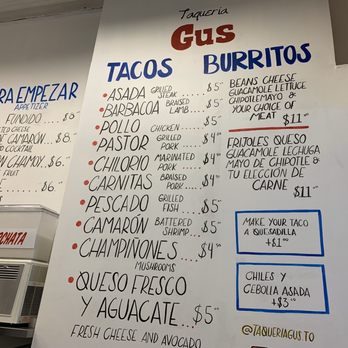 Taqueria
Gus
RA EMPEZAR
APPETIZER
FUNDIDO
DE CAMARÓN
COCKTAIL
ON CHAMOY
FRUIT
CHATA
TACOS
• ASADA GRILLED STEAK $5
• BARBACOA BRAISED LAMB. $5
• POLLO CHICKEN $5
• PASTOR GRILLED PORK $4
• CHILORIO MARINATED PORK $4
• CARNITAS BRAISED PORK $4
• PESCADO GRILLED FISH $5
• CAMARÓN BATTERED SHRIMP $5
• CHAMPIÑONES $4
MUSHROOMS
• QUESO FRESCO
Y AGUACATE $5
FRESH CHEESE AND AVOCADO
BURRITOS
BEANS CHEESE
GUACAMOLE LETTUCE
CHIPOTLEMAYO &
YOUR CHOICE OF
MEAT $11
FRIJOLES QUESO
GUACAMOLE LECHUGA
MAYO DE CHIPOTLE &
TU ELECCIÓN DE
CARNE $11
MAKE YOUR TACO
A QUESADILLA
+$1
CHILES Y
CEBOLLA ASADA
+$3
@TAQUERIAGUS.TO